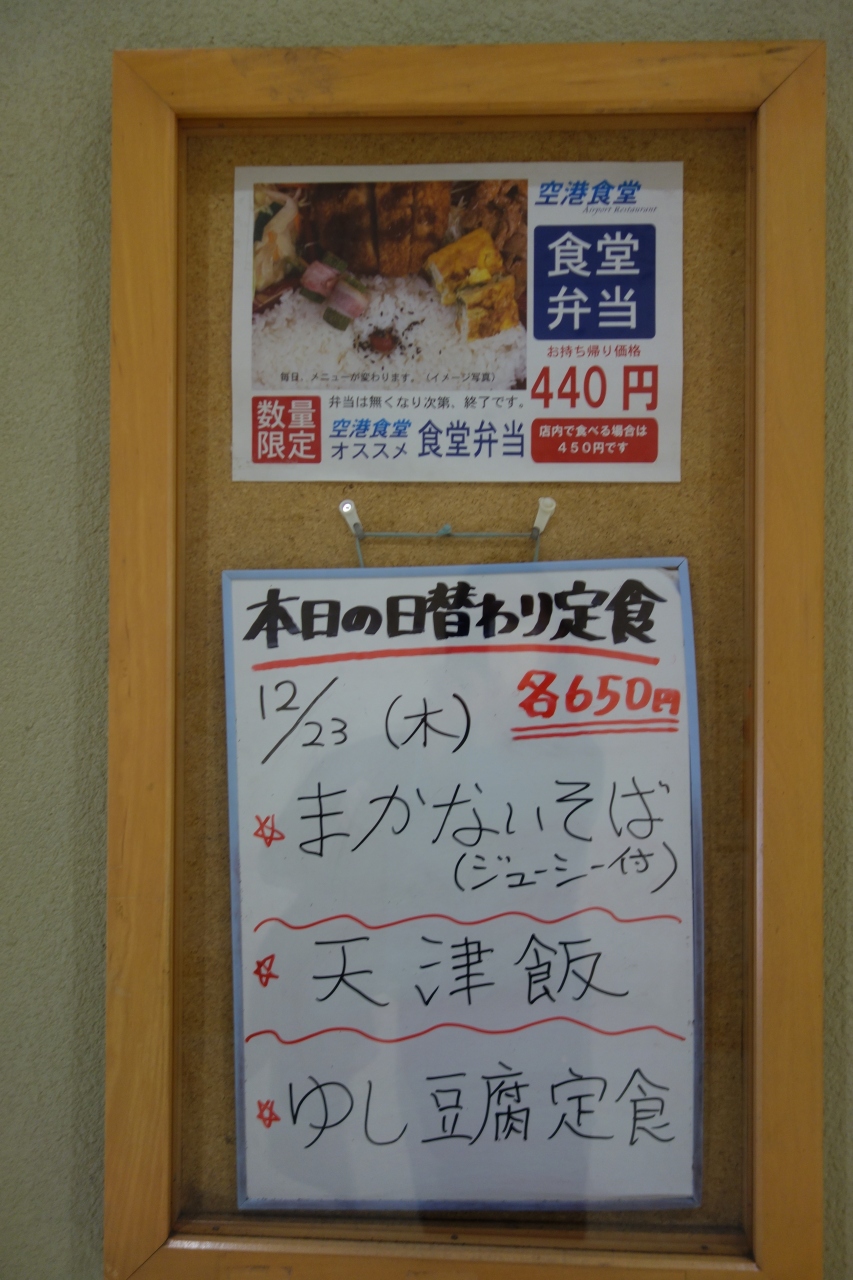 空港食堂
Airport Restaurant
食堂
弁当
お持ち帰り価格
440円
毎日、メニューが変わります。（イメージ写真）
数量
限定
弁当は無くなり次第、終了です。
空港食堂
オススメ
食堂弁当
店内で食べる場合は
450円です
本日の日替わり定食
各650円
12/23 (木)
☆ まかないそば
(ジューシー付)
☆ 天津飯
☆ ゆし豆腐定食